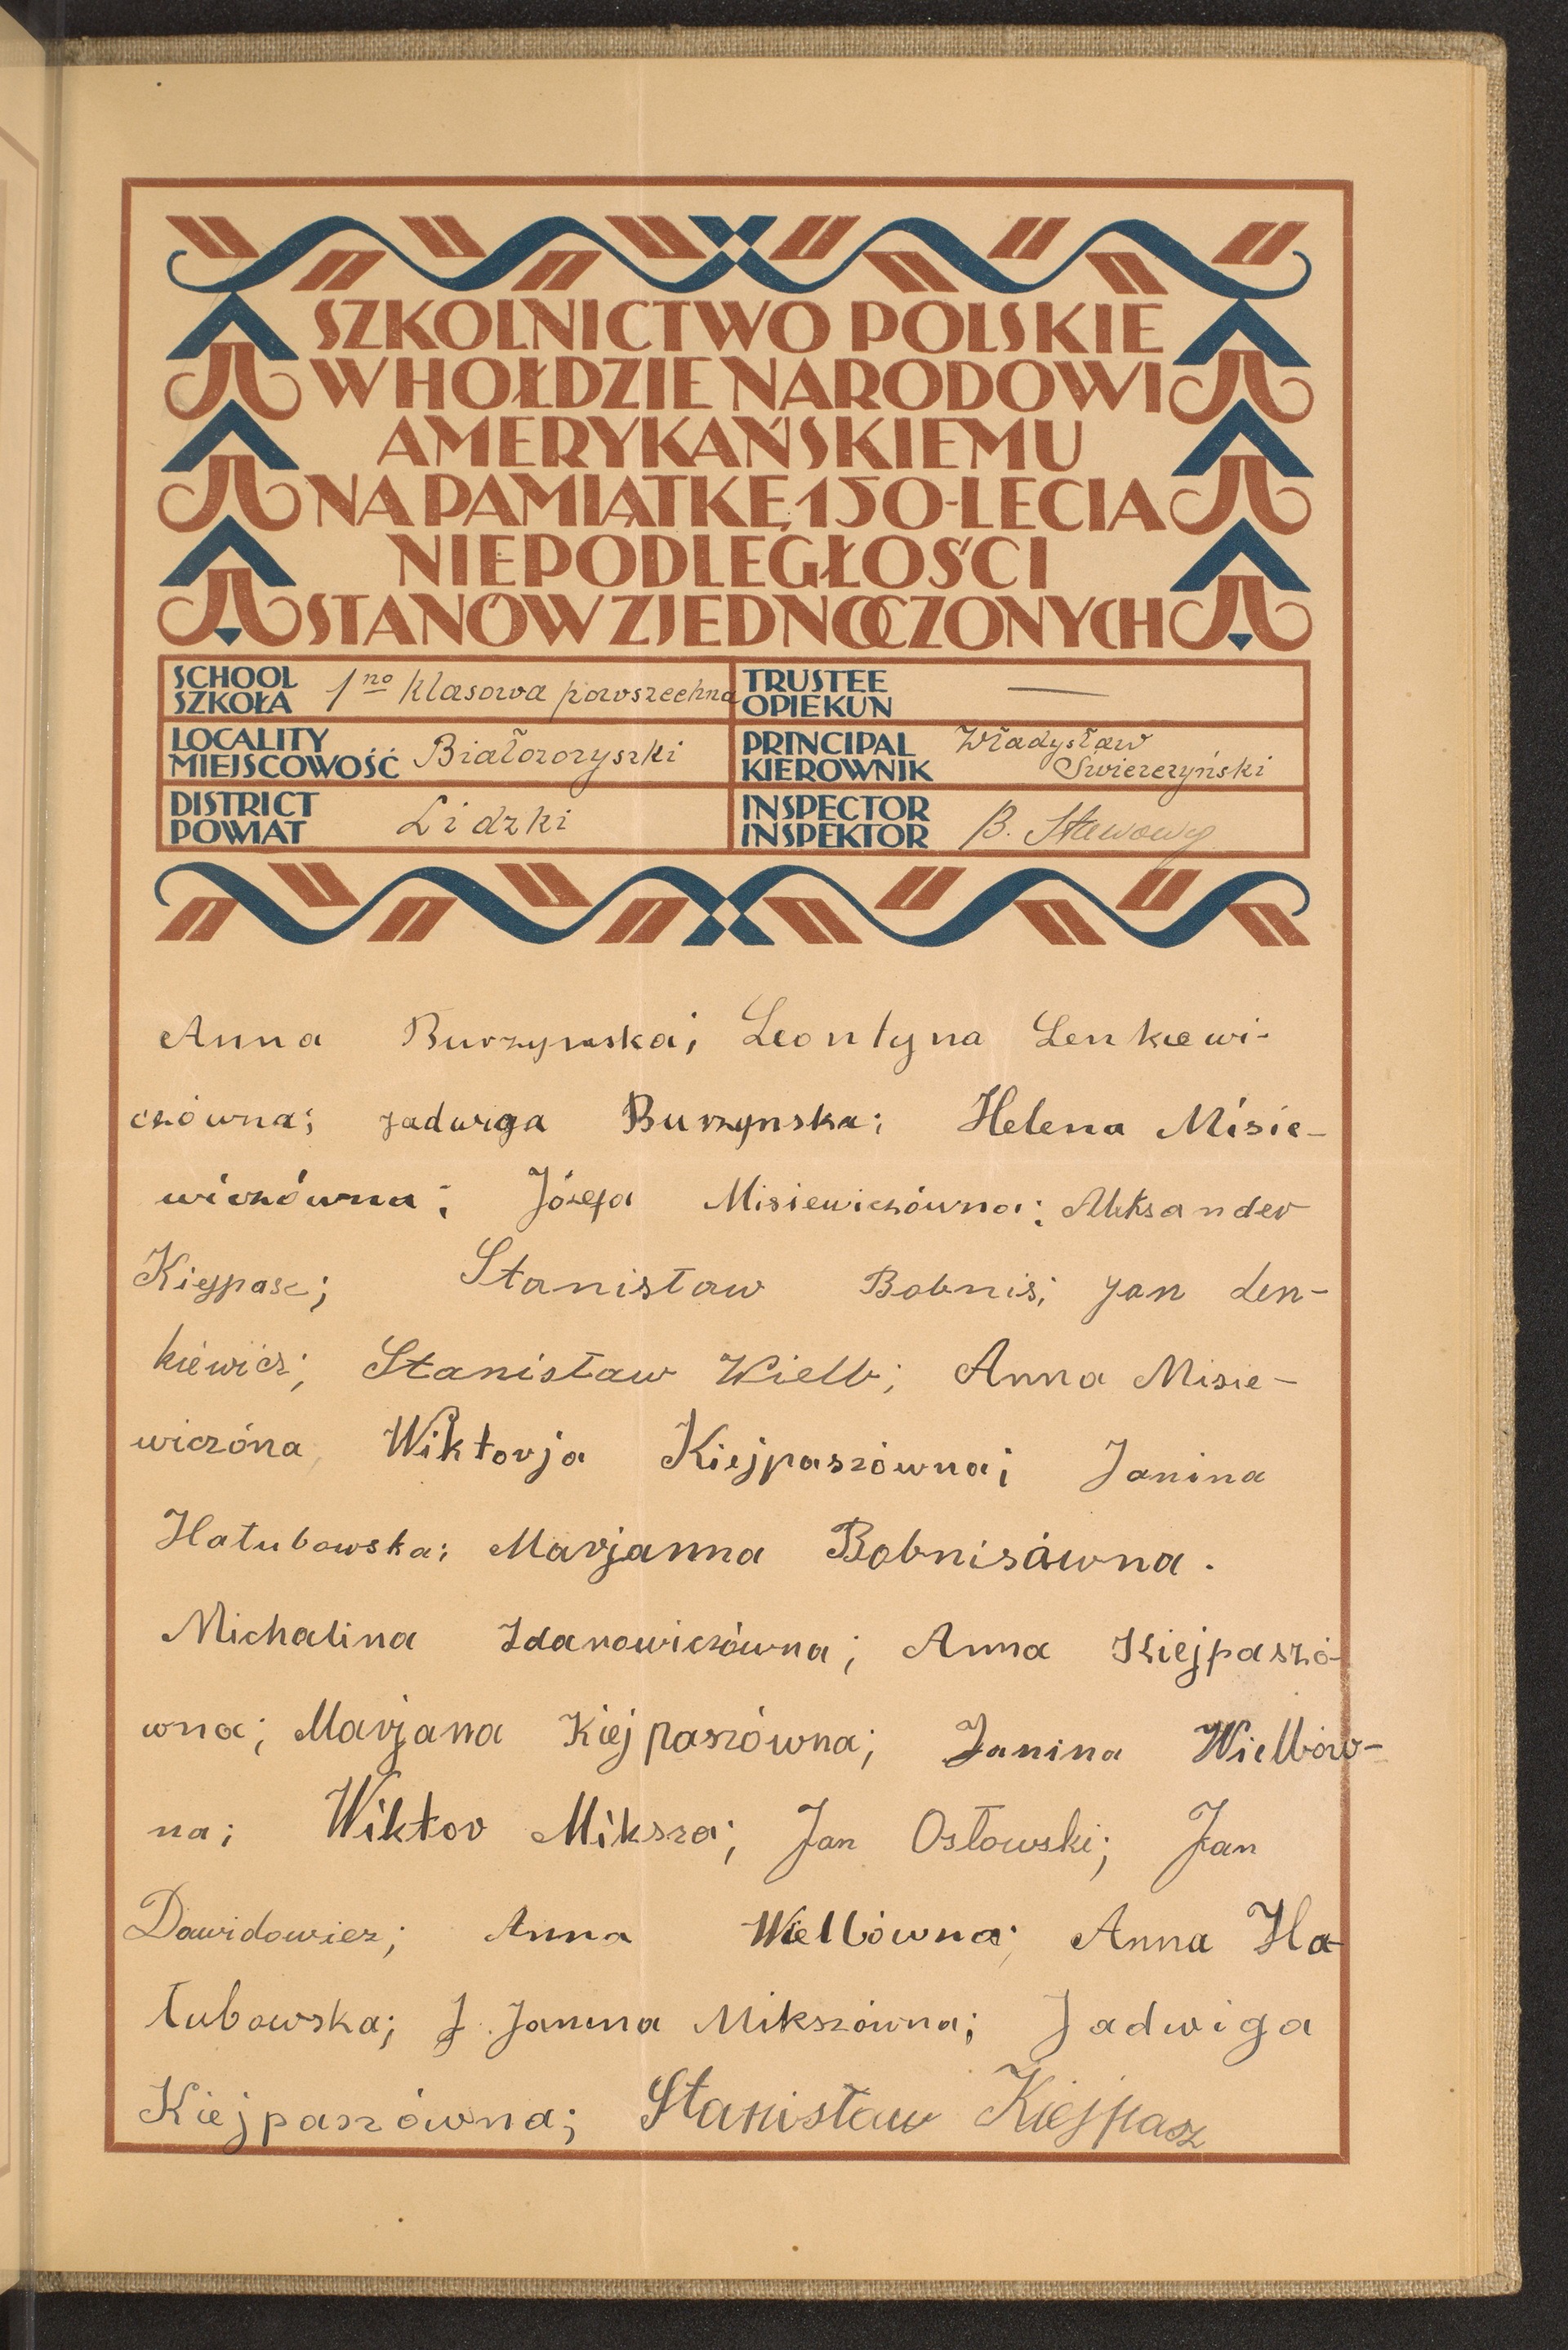 SZKOLNICTWO POLSKIE
W HOŁDZIE NARODOWI
AMERYKAŃSKIEMU
NA PAMIĄTKĘ 150-LECIA
NIEPODLEGŁOŚCI
STANÓW ZJEDNOCZONYCH
SCHOOL
SZKOŁA
1no klasowa powszechna
TRUSTEE
OPIEKUN
—
LOCALITY
MIEJSCOWOŚĆ
Białozoryszki
PRINCIPAL
KIEROWNIK
Władysław
Swierczyński
DISTRICT
POWIAT
Lidzki
INSPECTOR
INSPEKTOR
B. Stawowy
Anna Burzynska; Leontyna Lenkiewi-
czówna; Jadwiga Burzynska; Helena Misie-
wiczówna; Józefa Misiewiczówna; Aleksander
Kiejpasz; Stanisław Bobnis; Jan Len-
kiewicz; Stanisław Wielb; Anna Misie-
wiczóna, Wiktorja Kiejpaszówna; Janina
Hałubowska; Marjanna Bobnisówna.
Michalina Zdanowiczówna; Anna Kiejpaszó-
wna; Marjana Kiejpaszówna; Janina Wielbów-
na; Wiktor Miksza; Jan Osłowski; Jan
Dawidowicz; Anna Wielbówna; Anna Ha-
łubowska; J. Janina Mikszówna; Jadwiga
Kiejpaszówna; Stanisław Kiejpasz